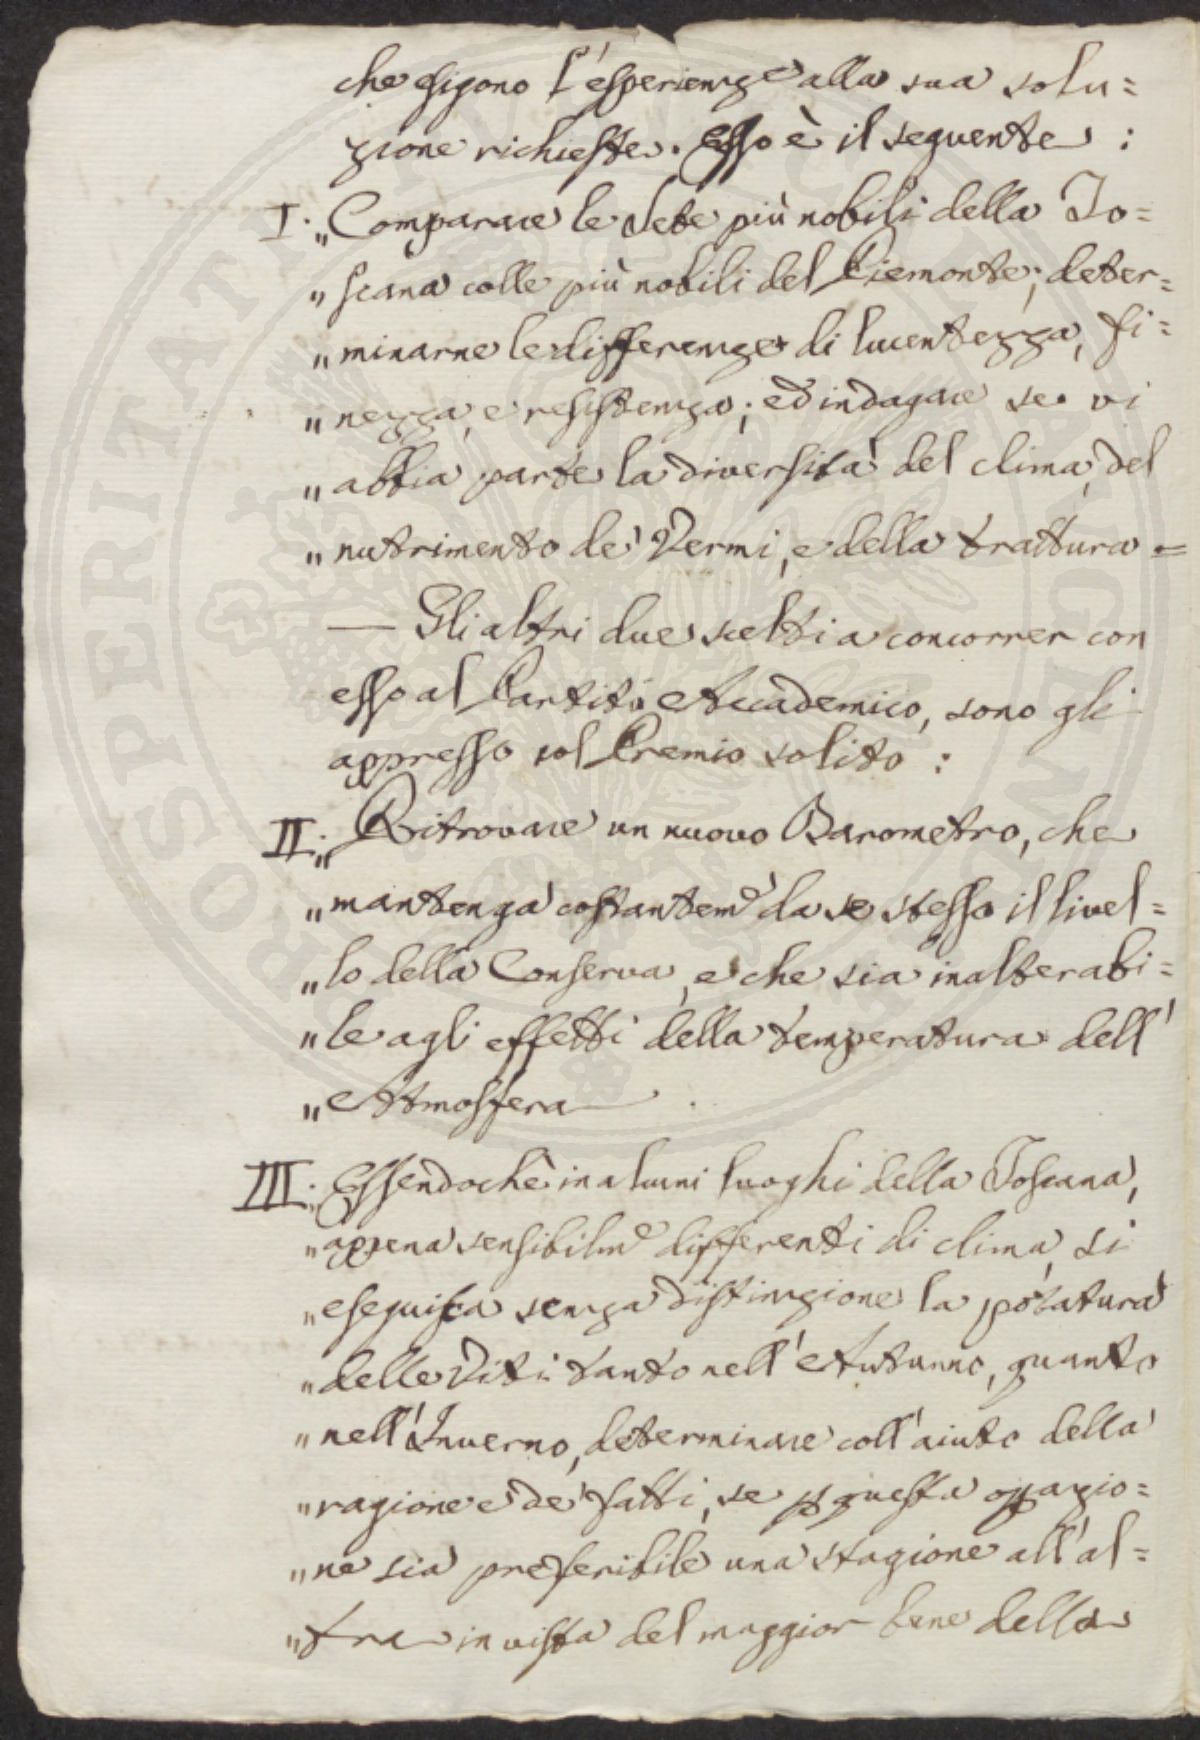 che esigono l'esperienze alla sua solu=
zione richieste. Esso è il seguente :
I. „Comparare le Sete più nobili della To=
„scana colle più nobili del Piemonte; deter=
„minarne le differenze di lucentezza, fi=
„nezza, e resistenza; ed indagare se vi
„abbia parte la diversità del clima, del
„nutrimento de' Vermi, e della trattura =
— Gli altri due scelti a concorrer con
esso al Partito Accademico, sono gli
appresso col Premio solito :
II. „Ritrovare un nuovo Barometro, che
„mantenga costantem.e da se stesso il livel=
„lo della Conserva, e che sia inalterabi=
„le agli effetti della temperatura dell'
„Atmosfera
III. „Essendochè in alcuni luoghi della Toscana,
„appena sensibilm.e differenti di clima, si
„eseguisca senza distinzione la potatura
„delle Viti tanto nell'Autunno, quanto
„nell'Inverno, determinare coll'aiuto della
„ragione e de' fatti, se p questa opazio=
„ne sia preferibile una stagione all'al=
„tra in vista del maggior bene della
PROSPERITATI